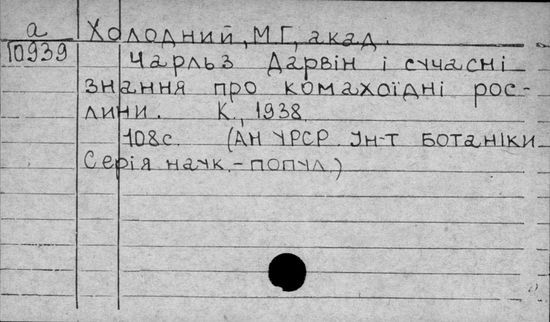 а
10939
Холодний, М.Г., акад.
Чарльз Дарвін і сучасні
знання про комахоїдні рос-
лини. К., 1938.
108с. (АН УРСР. Ін-т ботаніки.
Серія наук.-попул.)